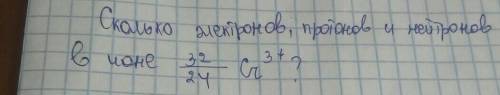 Сколько электронов, протонов и нейтронов
в ионе 32/24 Cr³⁺?